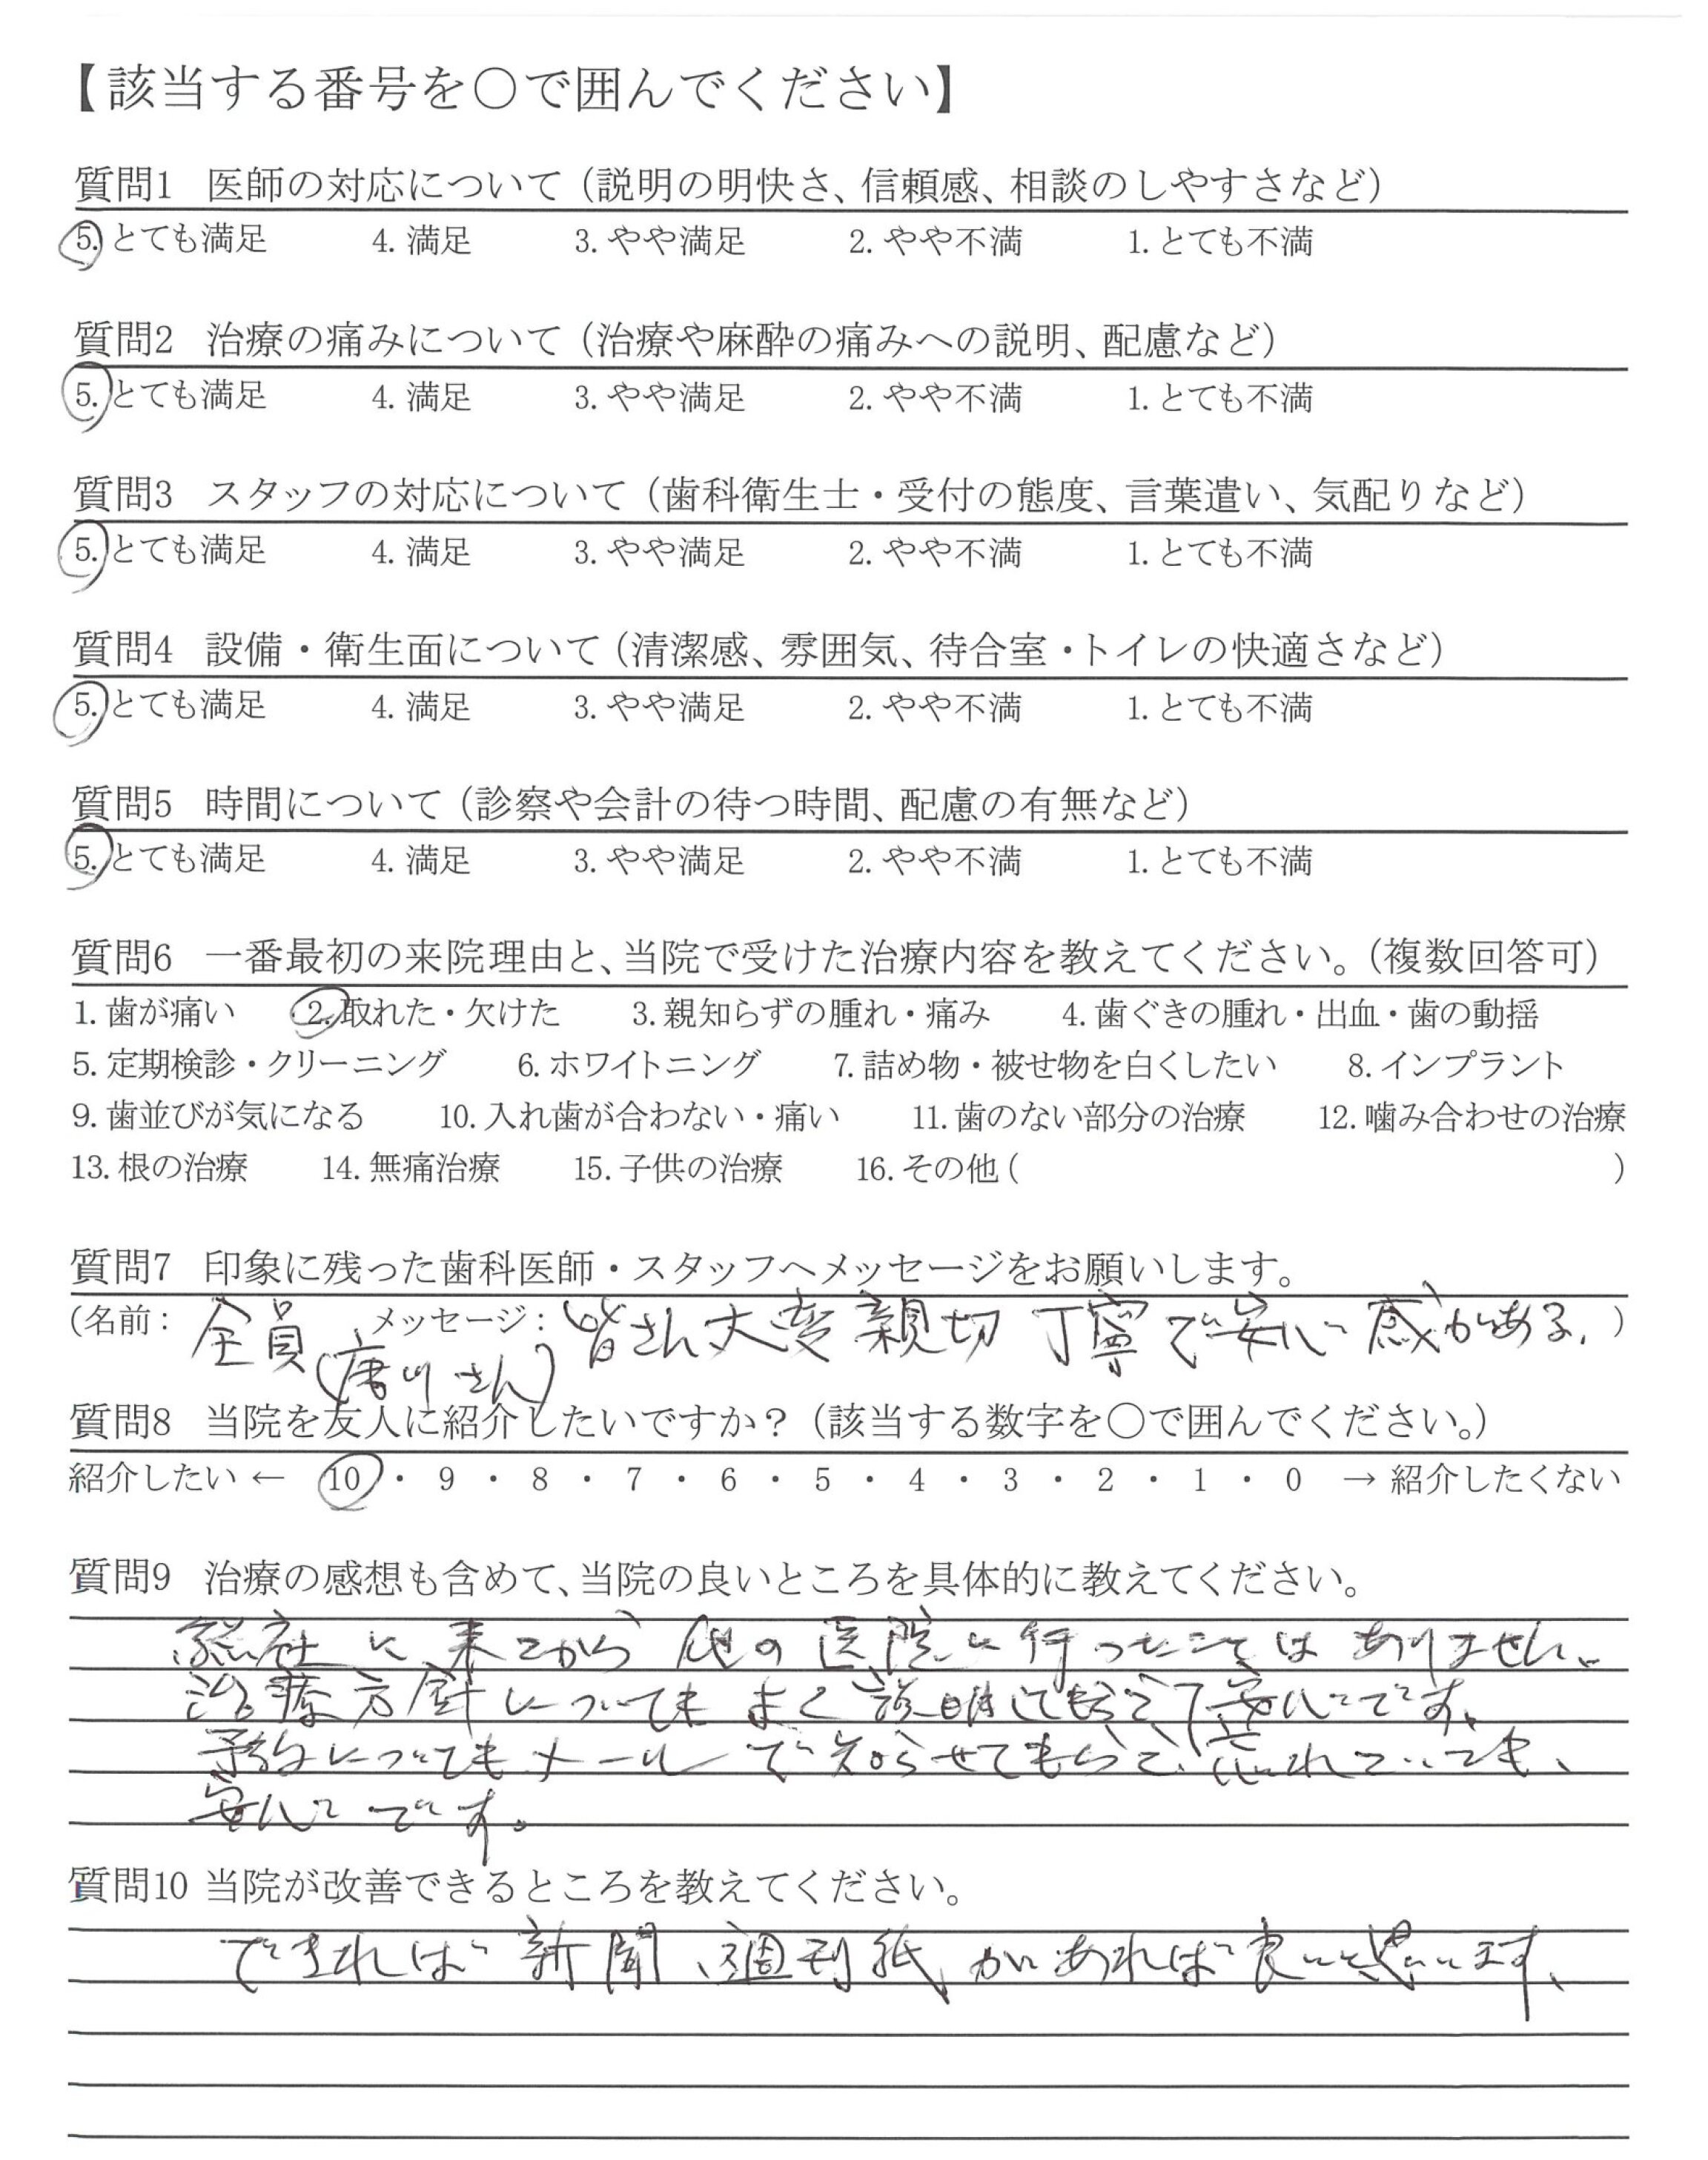 【該当する番号を○で囲んでください】
質問1 医師の対応について（説明の明快さ、信頼感、相談のしやすさなど）
5. とても満足 4. 満足 3. やや満足 2. やや不満 1. とても不満
質問2 治療の痛みについて（治療や麻酔の痛みへの説明、配慮など）
5. とても満足 4. 満足 3. やや満足 2. やや不満 1. とても不満
質問3 スタッフの対応について（歯科衛生士・受付の態度、言葉遣い、気配りなど）
5. とても満足 4. 満足 3. やや満足 2. やや不満 1. とても不満
質問4 設備・衛生面について（清潔感、雰囲気、待合室・トイレの快適さなど）
5. とても満足 4. 満足 3. やや満足 2. やや不満 1. とても不満
質問5 時間について（診察や会計の待つ時間、配慮の有無など）
5. とても満足 4. 満足 3. やや満足 2. やや不満 1. とても不満
質問6 一番最初の来院理由と、当院で受けた治療内容を教えてください。（複数回答可）
1. 歯が痛い 2. 取れた・欠けた 3. 親知らずの腫れ・痛み 4. 歯ぐきの腫れ・出血・歯の動揺
5. 定期検診・クリーニング 6. ホワイトニング 7. 詰め物・被せ物を白くしたい 8. インプラント
9. 歯並びが気になる 10. 入れ歯が合わない・痛い 11. 歯のない部分の治療 12. 噛み合わせの治療
13. 根の治療 14. 無痛治療 15. 子供の治療 16. その他（ ）
質問7 印象に残った歯科医師・スタッフへメッセージをお願いします。
（名前： 全員 メッセージ： 皆さん大変親切 丁寧で安心感がある. ）
（唐川さん）
質問8 当院を友人に紹介したいですか？（該当する数字を○で囲んでください。）
紹介したい ← 10 ・ 9 ・ 8 ・ 7 ・ 6 ・ 5 ・ 4 ・ 3 ・ 2 ・ 1 ・ 0 → 紹介したくない
質問9 治療の感想も含めて、当院の良いところを具体的に教えてください。
総社に来てから他の医院に行ったことはありません。
治療方針についてもよく説明してもらえて安心です。
予約についてもメールで知らせてもらえ、忘れていても、
安心です。
質問10 当院が改善できるところを教えてください。
できれば新聞、週刊紙があれば良いと思います、